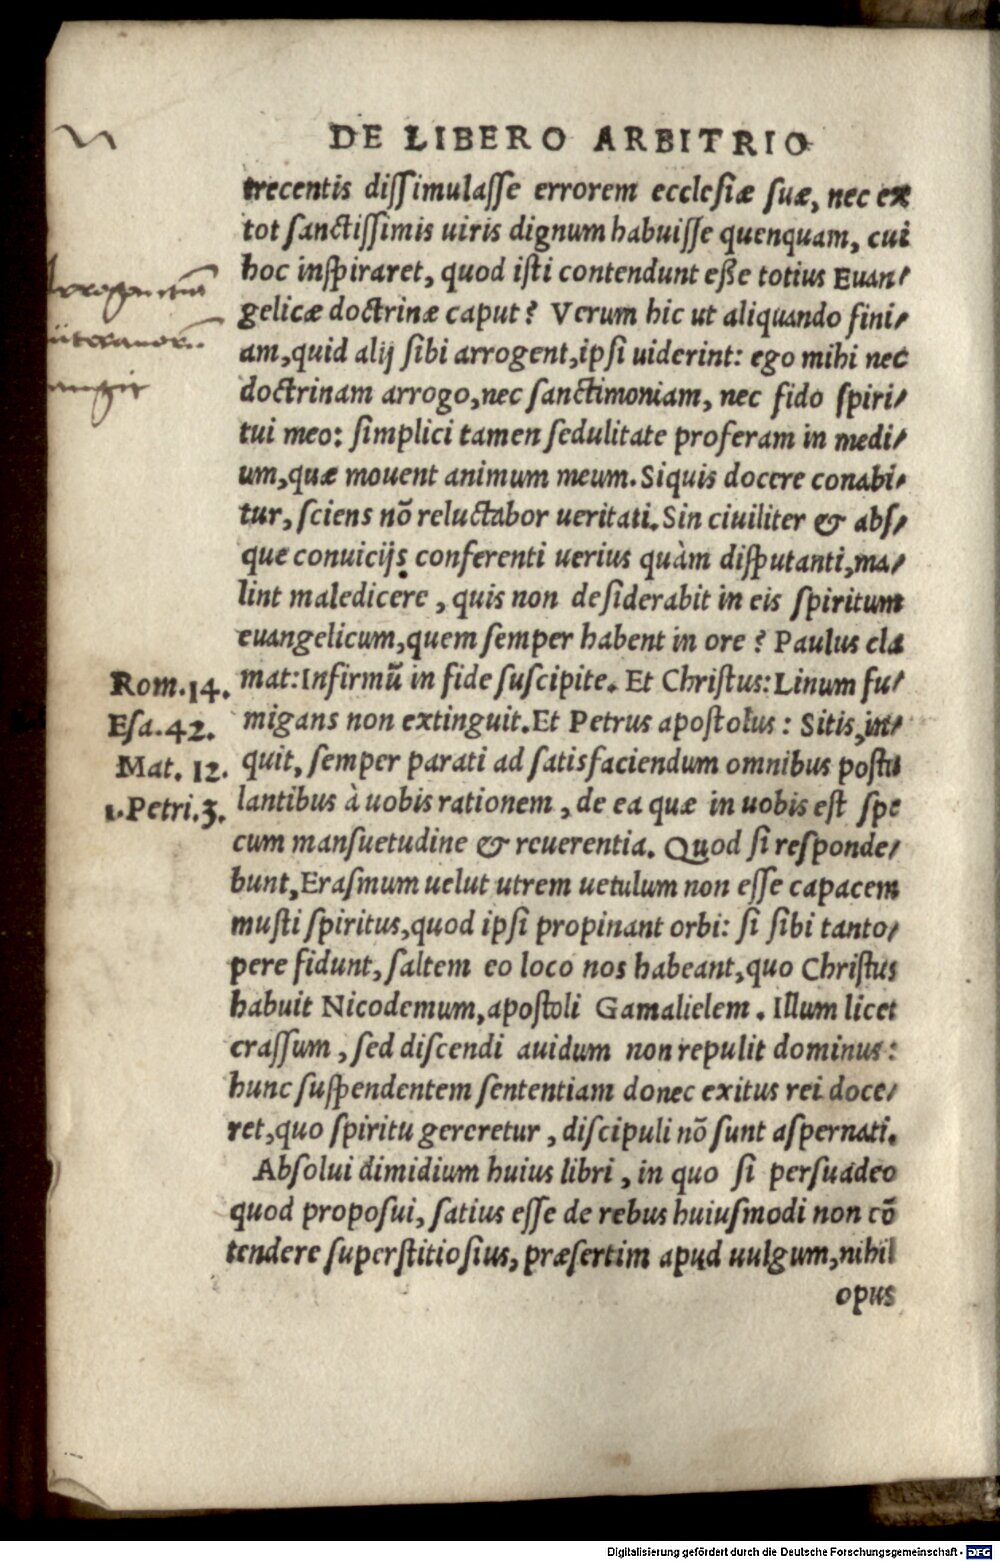 DE LIBERO ARBITRIO
trecentis dißimulasse errorem ecclesiæ suæ, nec ex
tot sanctißimis uiris dignum habuisse quenquam, cui
hoc inspiraret, quod isti contendunt eße totius Euan-
gelicæ doctrinæ caput? Verum hic ut aliquando fini-
am, quid alij sibi arrogent, ipsi uiderint: ego mihi nec
doctrinam arrogo, nec sanctimoniam, nec fido spiri-
tui meo: simplici tamen sedulitate proferam in medi-
um, quæ mouent animum meum. Siquis docere conabi-
tur, sciens nõ reluctabor ueritati. Sin ciuiliter & abs-
que conuicijs conferenti uerius quàm disputanti, ma-
lint maledicere, quis non desiderabit in eis spiritum
euangelicum, quem semper habent in ore? Paulus cla
mat: Infirmũ in fide suscipite. Et Christus: Linum fu-
migans non extinguit. Et Petrus apostolus: Sitis, in-
quit, semper parati ad satisfaciendum omnibus postu
lantibus à uobis rationem, de ea quæ in uobis est spe
cum mansuetudine & reuerentia. Quod si responde-
bunt, Erasmum uelut utrem uetulum non esse capacem
musti spiritus, quod ipsi propinant orbi: si sibi tanto-
pere fidunt, saltem eo loco nos habeant, quo Christus
habuit Nicodemum, apostoli Gamalielem. Illum licet
crassum, sed discendi auidum non repulit dominus:
hunc suspendentem sententiam donec exitus rei doce-
ret, quo spiritu gereretur, discipuli nõ sunt aspernati.
Absolui dimidium huius libri, in quo si persuadeo
quod proposui, satius esse de rebus huiusmodi non cõ
tendere superstitiosius, præsertim apud uulgum, nihil
opus
Rom. 14.
Esa. 42.
Mat. 12.
1. Petri. 3.
Digitalisierung gefördert durch die Deutsche Forschungsgemeinschaft - DFG